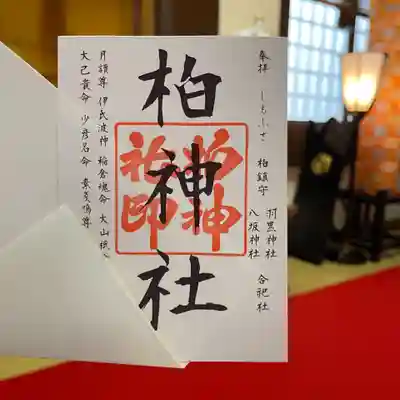 奉拝 しもふさ 柏鎮守
羽黒神社
八坂神社
合祀社
柏神社
柏神
社印
月讀尊 伊氏波神 稲倉魂命 大山祇
大己貴命 少彦名命 素戔嗚尊